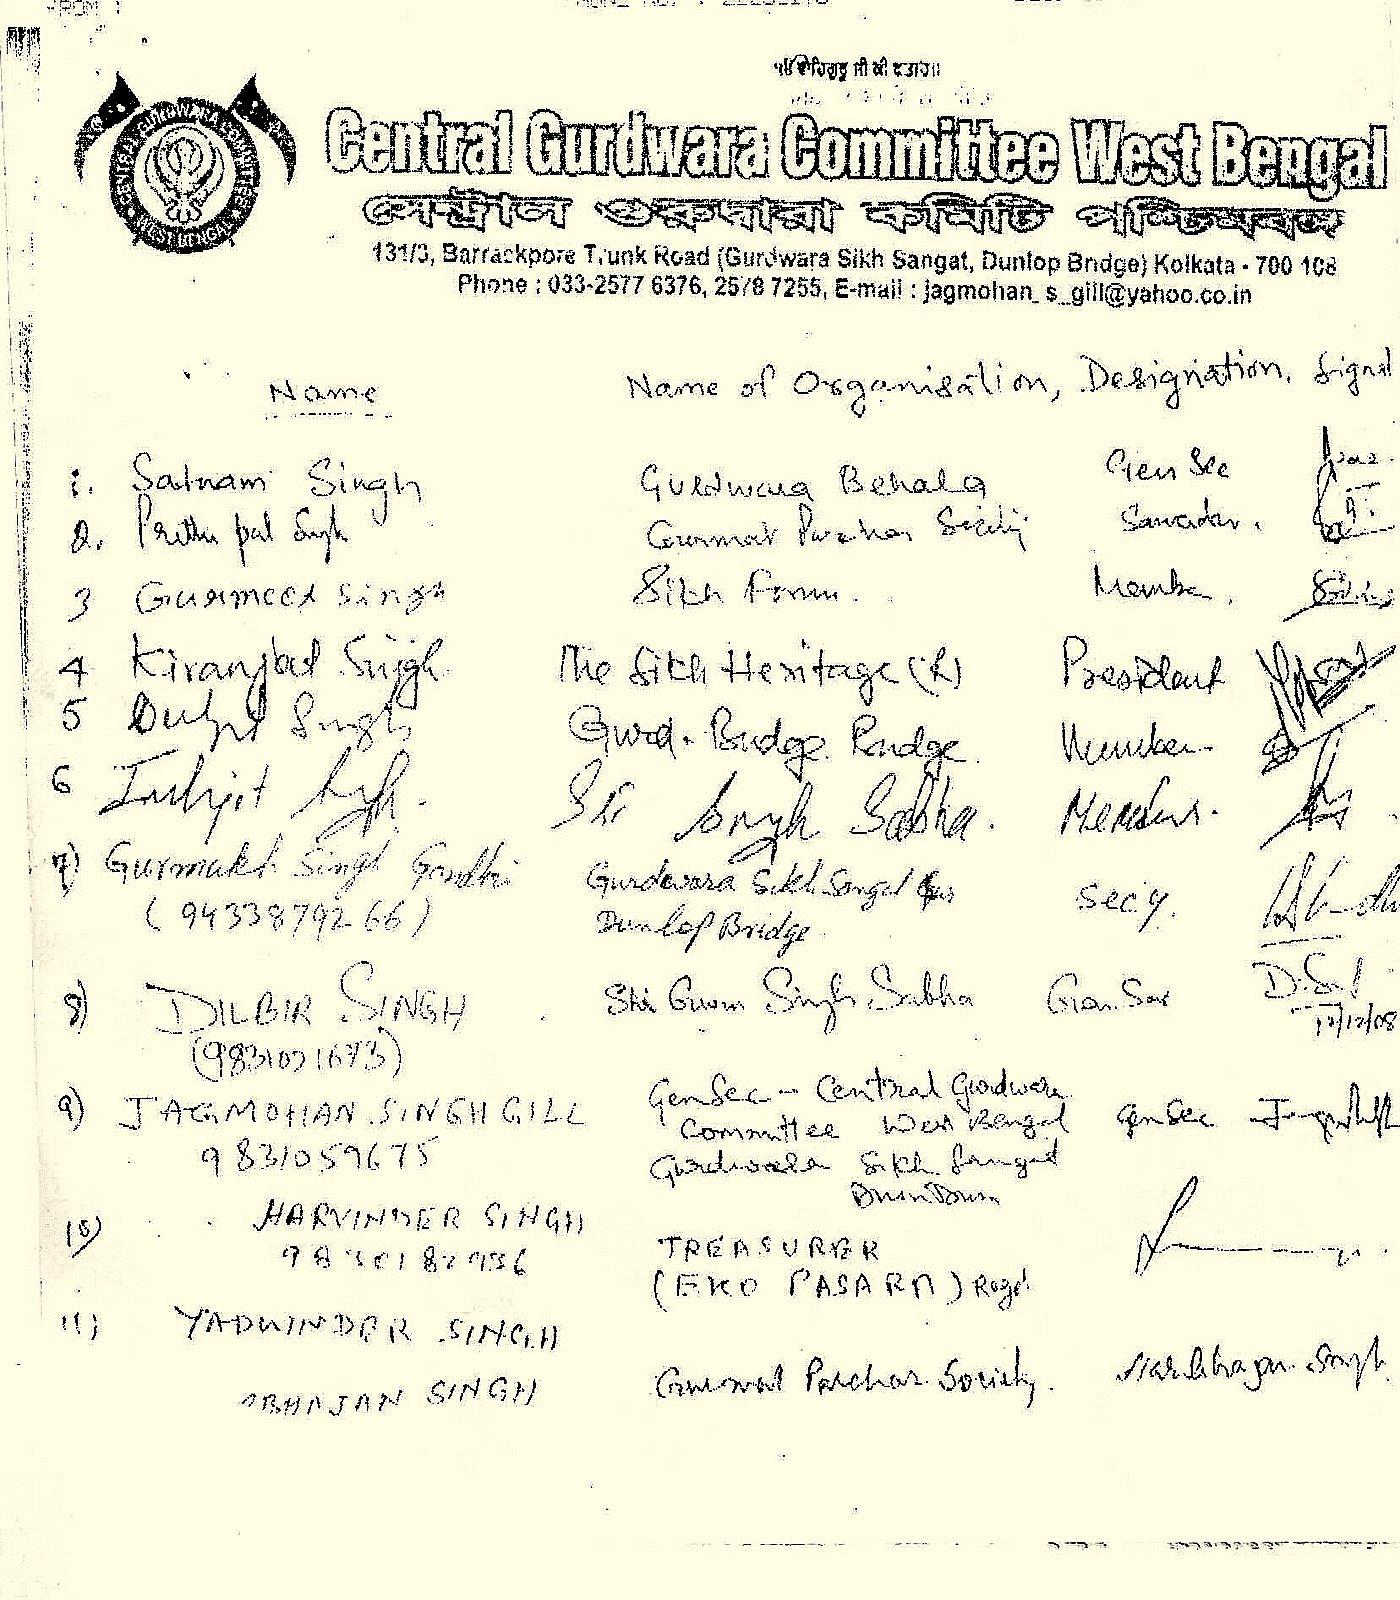 FROM :
Central Gurdwara Committee West Bengal
সেন্ট্রাল গুরুদ্বারা কমিটি পশ্চিমবঙ্গ
131/3, Barrackpore Trunk Road (Gurdwara Sikh Sangat, Dunlop Bridge) Kolkata - 700 108
Phone : 033-2577 6376, 2578 7255, E-mail : jagmohan_s_gill@yahoo.co.in
Name Name of Organisation, Designation, Signat
1. Satnam Singh Gurdwara Behala Gen Sec
2. Prithi pal Singh Gurmat Parchar Society
3 Gurmeet Singh Sikh Forum. Member,
4 Kiranjeet Singh The Sikh Heritage (R) President
5 Singh Gurd. Bridge Member
6 Indrjit Singh Sri Singh Sabha. Member.
7) Gurmukh Singh Gandhi Gurdwara Sikh Sangat Secy.
(9433879266) Dunlop Bridge
8) DILBIR SINGH Shri Guru Singh Sabha Gen Sec D.S
(9831071673) 12/12/08
9) JAGMOHAN SINGH GILL Gen Sec - Central Gurdwara
Committee West Bengal Gen Sec
9831059675 Gurdwara Sikh Sangat
Dum Dum
10) HARVINDER SINGH TREASURER
(EKO PASARA) Regd
11) YADWINDER SINGH
BHAJAN SINGH Gurmat Parchar Society. Harbhajan Singh